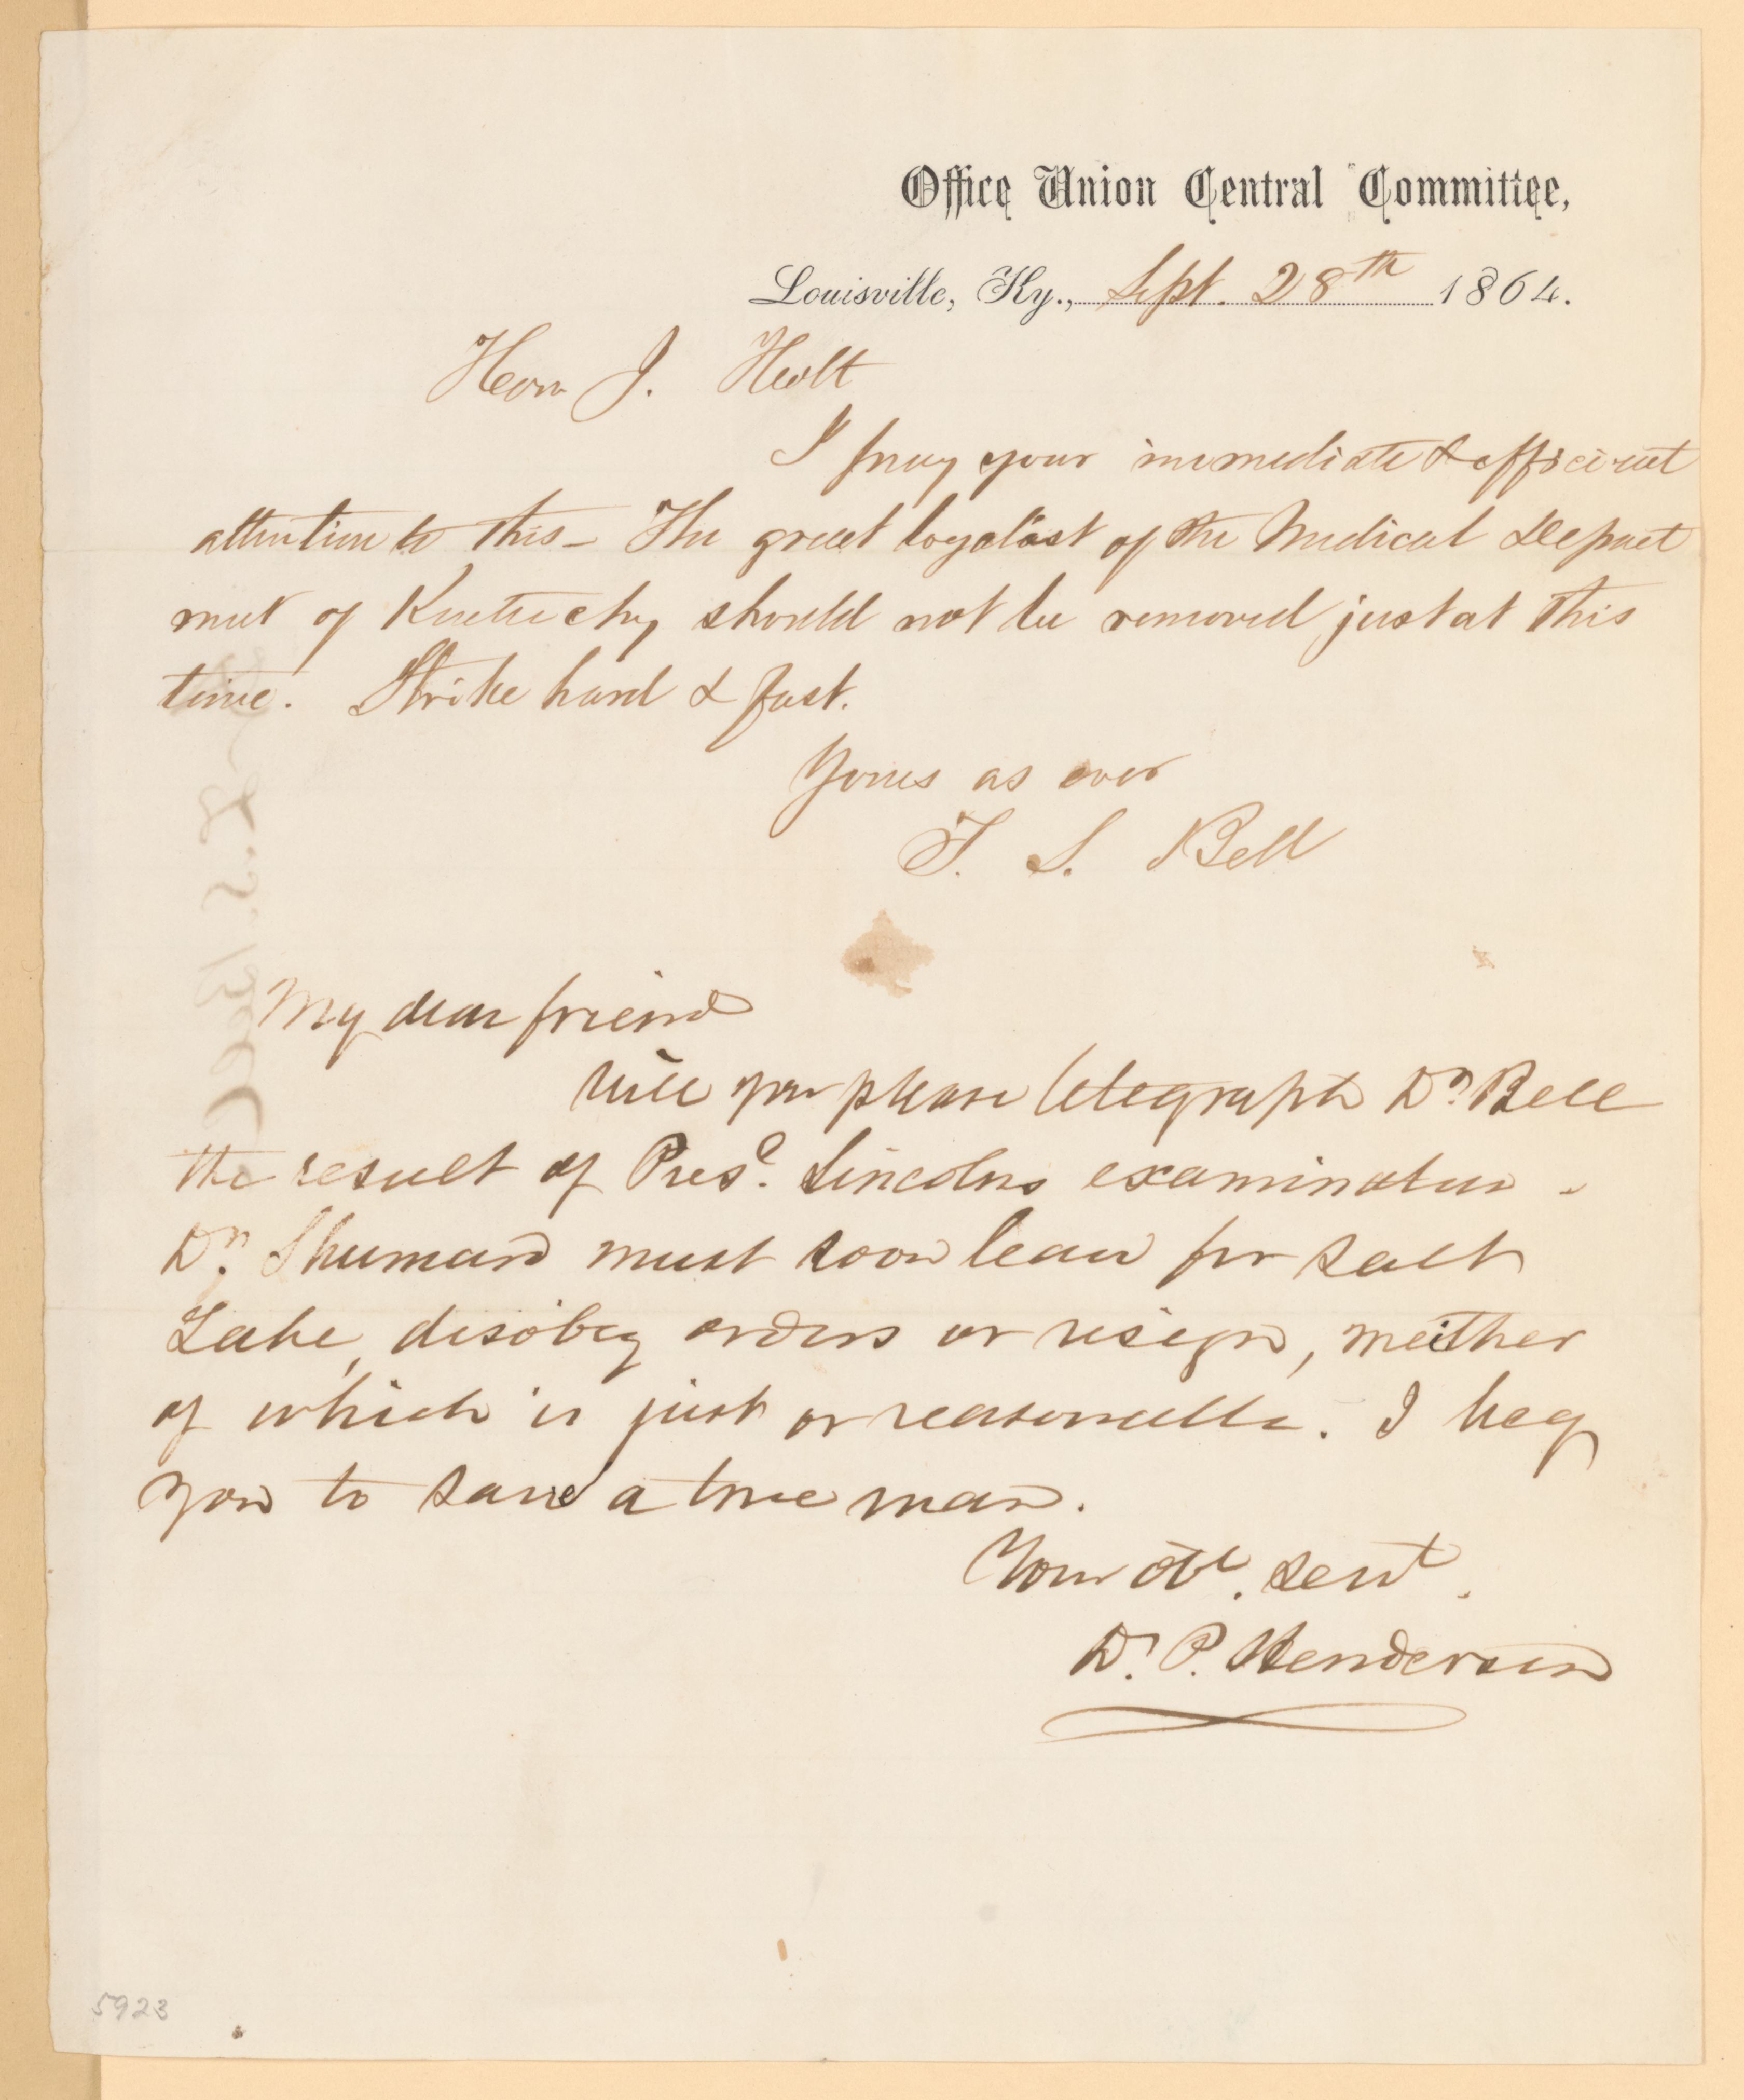 Office Union Central Committee,
Louisville, Ky., Sept. 28th 1864.
Hon J. Holt
I pray your immediate & efficient
attention to this – The great loyalist of the Medical Depart
ment of Kentucky should not be removed just at this
time. Strike hard & fast.
Yours as ever
T. S. Bell
My dear friend
Will you please telegraph Dr. Bell
the result of Prest. Lincolns examination –
Dr. Shumard must soon leave for Salt
Lake, disobey orders or resign, neither
of which is just or reasonable. I beg
you to save a true man.
Your obt. servt.
D. P. Henderson
5923